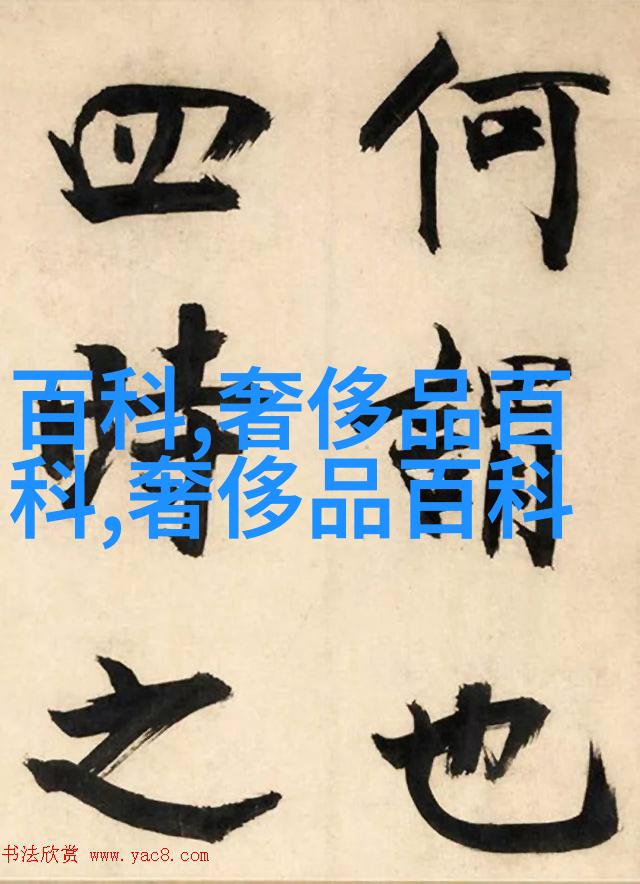 何謂也
四時之
百科,奢侈品百
科,奢侈品百科
书法欣赏 www.yac8.com